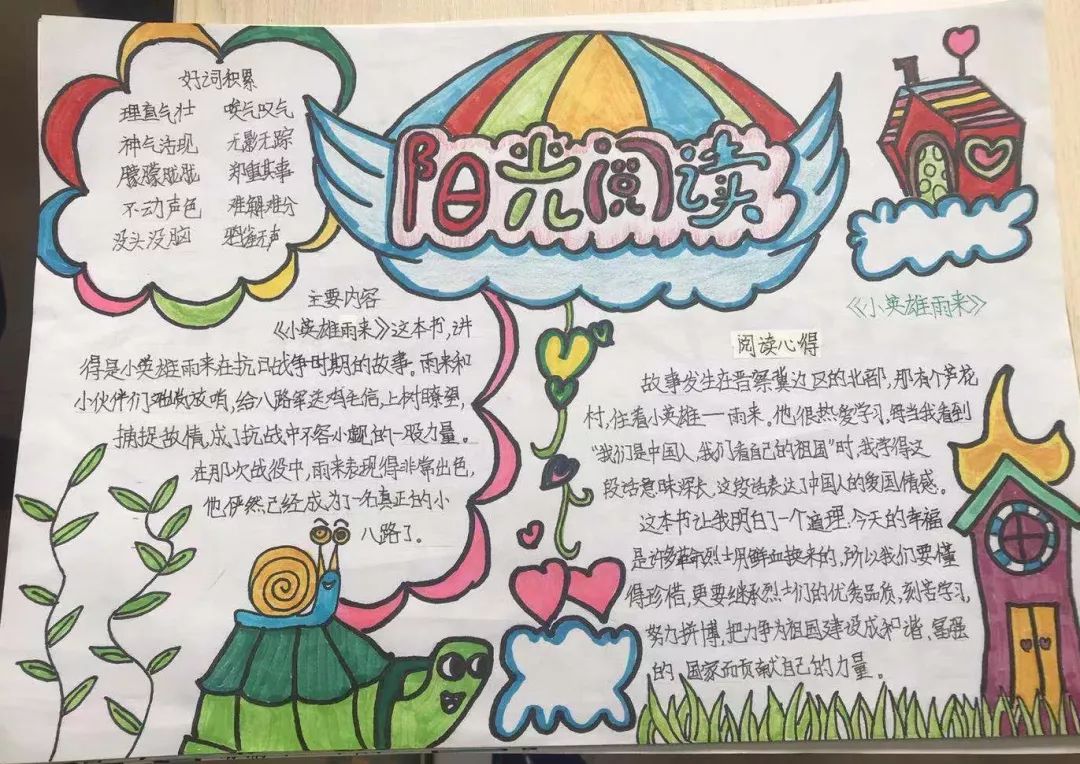 阳光阅读
好词积累
理直气壮 唉气叹气
神气活现 无影无踪
朦朦胧胧 郑重其事
不动声色 难解难分
没头没脑 鸦雀无声
主要内容
《小英雄雨来》这本书,讲
得是小英雄雨来在抗日战争时期的故事。雨来和
小伙伴们 放哨,给八路军送鸡毛信,上树瞭望,
捕捉敌情,成了抗战中不容小觑的一股力量。
在那次战役中,雨来表现得非常出色,
他俨然已经成为了一名真正的小
八路了。
《小英雄雨来》
阅读心得
故事发生在晋察冀边区的北部,那有个芦花
村,住着小英雄——雨来。他很热爱学习,每当我看到
“我们是中国人,我们看自己的祖国”时,我学得这
段话意味深长,这段话表达了中国人的爱国情感。
这本书让我明白了一个道理,今天的幸福
是许多革命烈士用鲜血换来的,所以我们要懂
得珍惜,更要继承烈士们的优秀品质,刻苦学习,
努力拼博,把力争为祖国建设成和谐、富强
的 国家而贡献自己的力量。